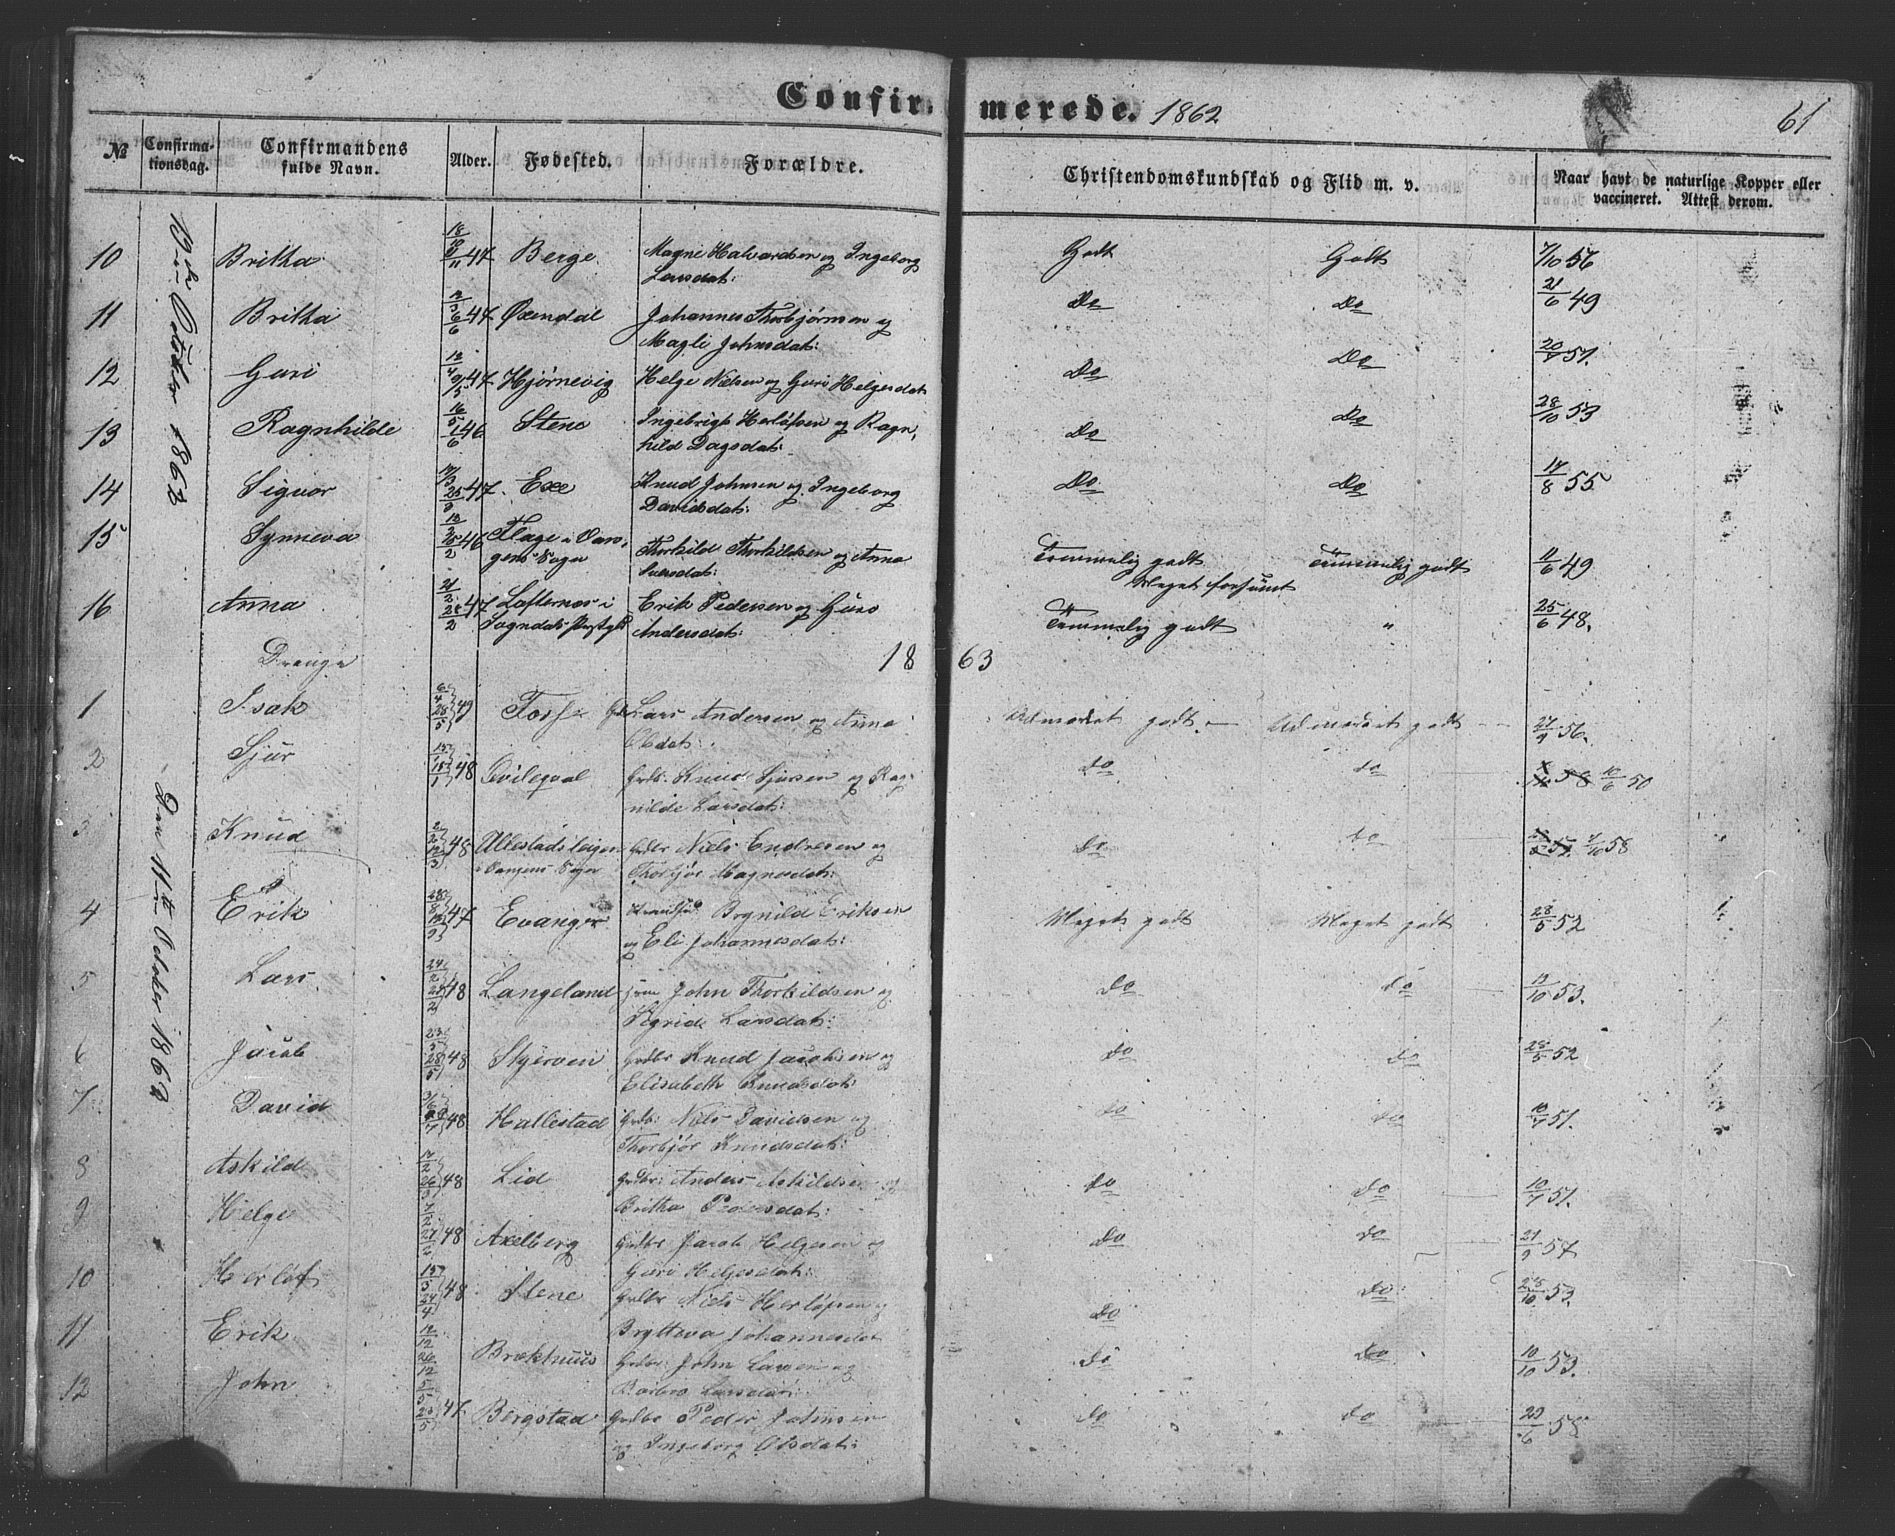 Confirmerede. 1862
61
№ Confirmationsdag. Confirmandens fulde Navn. Alder. Fødested. Forældre. Christendomskundskab og Flid m. v. Naar havt de naturlige Kopper eller vaccineret. Attest derom.
October 1862
10 Britha 18/10 11 47 Berge Magne Halvardsen og Ingeborg Larsdat: Godt Godt 7/10 56
11 Britha 47 Øxendal Johannes Thorbjørnsen og Magli Johnsdat: Do Do 21/6 49
12 Guri 47 Hjørnevig Helge Nielsen og Guri Helgesdat Do Do 20/7 51.
13 Ragnhilde 16/5 1/6 46 Stene Ingebrigt Herlofsen og Ragnhild Dagsdat: Do Do 28/10 53
14 Sigvor 47. Exe Knud Johnsen og Ingeborg Davidsdat: Do Do 14/8 55
15 Synneva 46 Flage i Vangens Sogn Thorkild Thorkildsen og Anna Iversdat: Temmelig godt Meget forsømt Temmelig godt 11/6 49
16 Anna 47 Loftesnes i Sogndals Præstgld Erik Pedersen og Guro Andersdat: Temmelig godt " 25/6 48.
Drenge
1863
Den 11te October 1862
1 Isak 6/4 28/5 49 Fosse Gdbr Lars Andersen og Anna Olsdat: Udmærket godt Udmærket godt 56.
2 Sjur 48 Qvileqval Gdbr: Knud Sjursen og Ragnilde Larsdat: Do do 10/6 50
3 Knud 48 Ullestadsteigen Vangens Sogn Gdbr Niels Endresen og Thorbjør Magnesdat: Do do 58
4 Erik 47 Evanger Brynild Eriksen og Eli Johannesdat: Meget godt Meget godt 28/5 52
5 Lars 48 Langeland John Thorkildsen og Sigride Larsdat: Do do 12/10 53.
6 Jacob 23/5 28/5 48 Styerven Gdbr Knud Jacobsen og Elisabeth Knudsdat: Do do 28/5 52
7 David 48 Hallestad Gdbr: Niels Davidsen og Thorbjør Knudsdat: Do do 10/7 51.
8 Askild 48 Lid Gdbr: Anders Askildsen og Britha Pedersdat: Do do 10/7 51.
9 Helge 7/2 27/2 48 Axelberg Gdbr Jacob Helgesen og Guri Helgesdat: Do do 21/9 57
10 Herlof 48 Stene Gdbr Niels Herlofsen og Brytteva Johannesdat Do Do 28/10 53.
11 Erik 12/12 26/12 Brækhuus Gdbr: John Larsen og Barbro Larsdat: Do Do 10/10 53.
12 John 5/5 23/5 47 Bergstad Gdbr Peder Johnsen og Ingeborg Olsdat: Do do